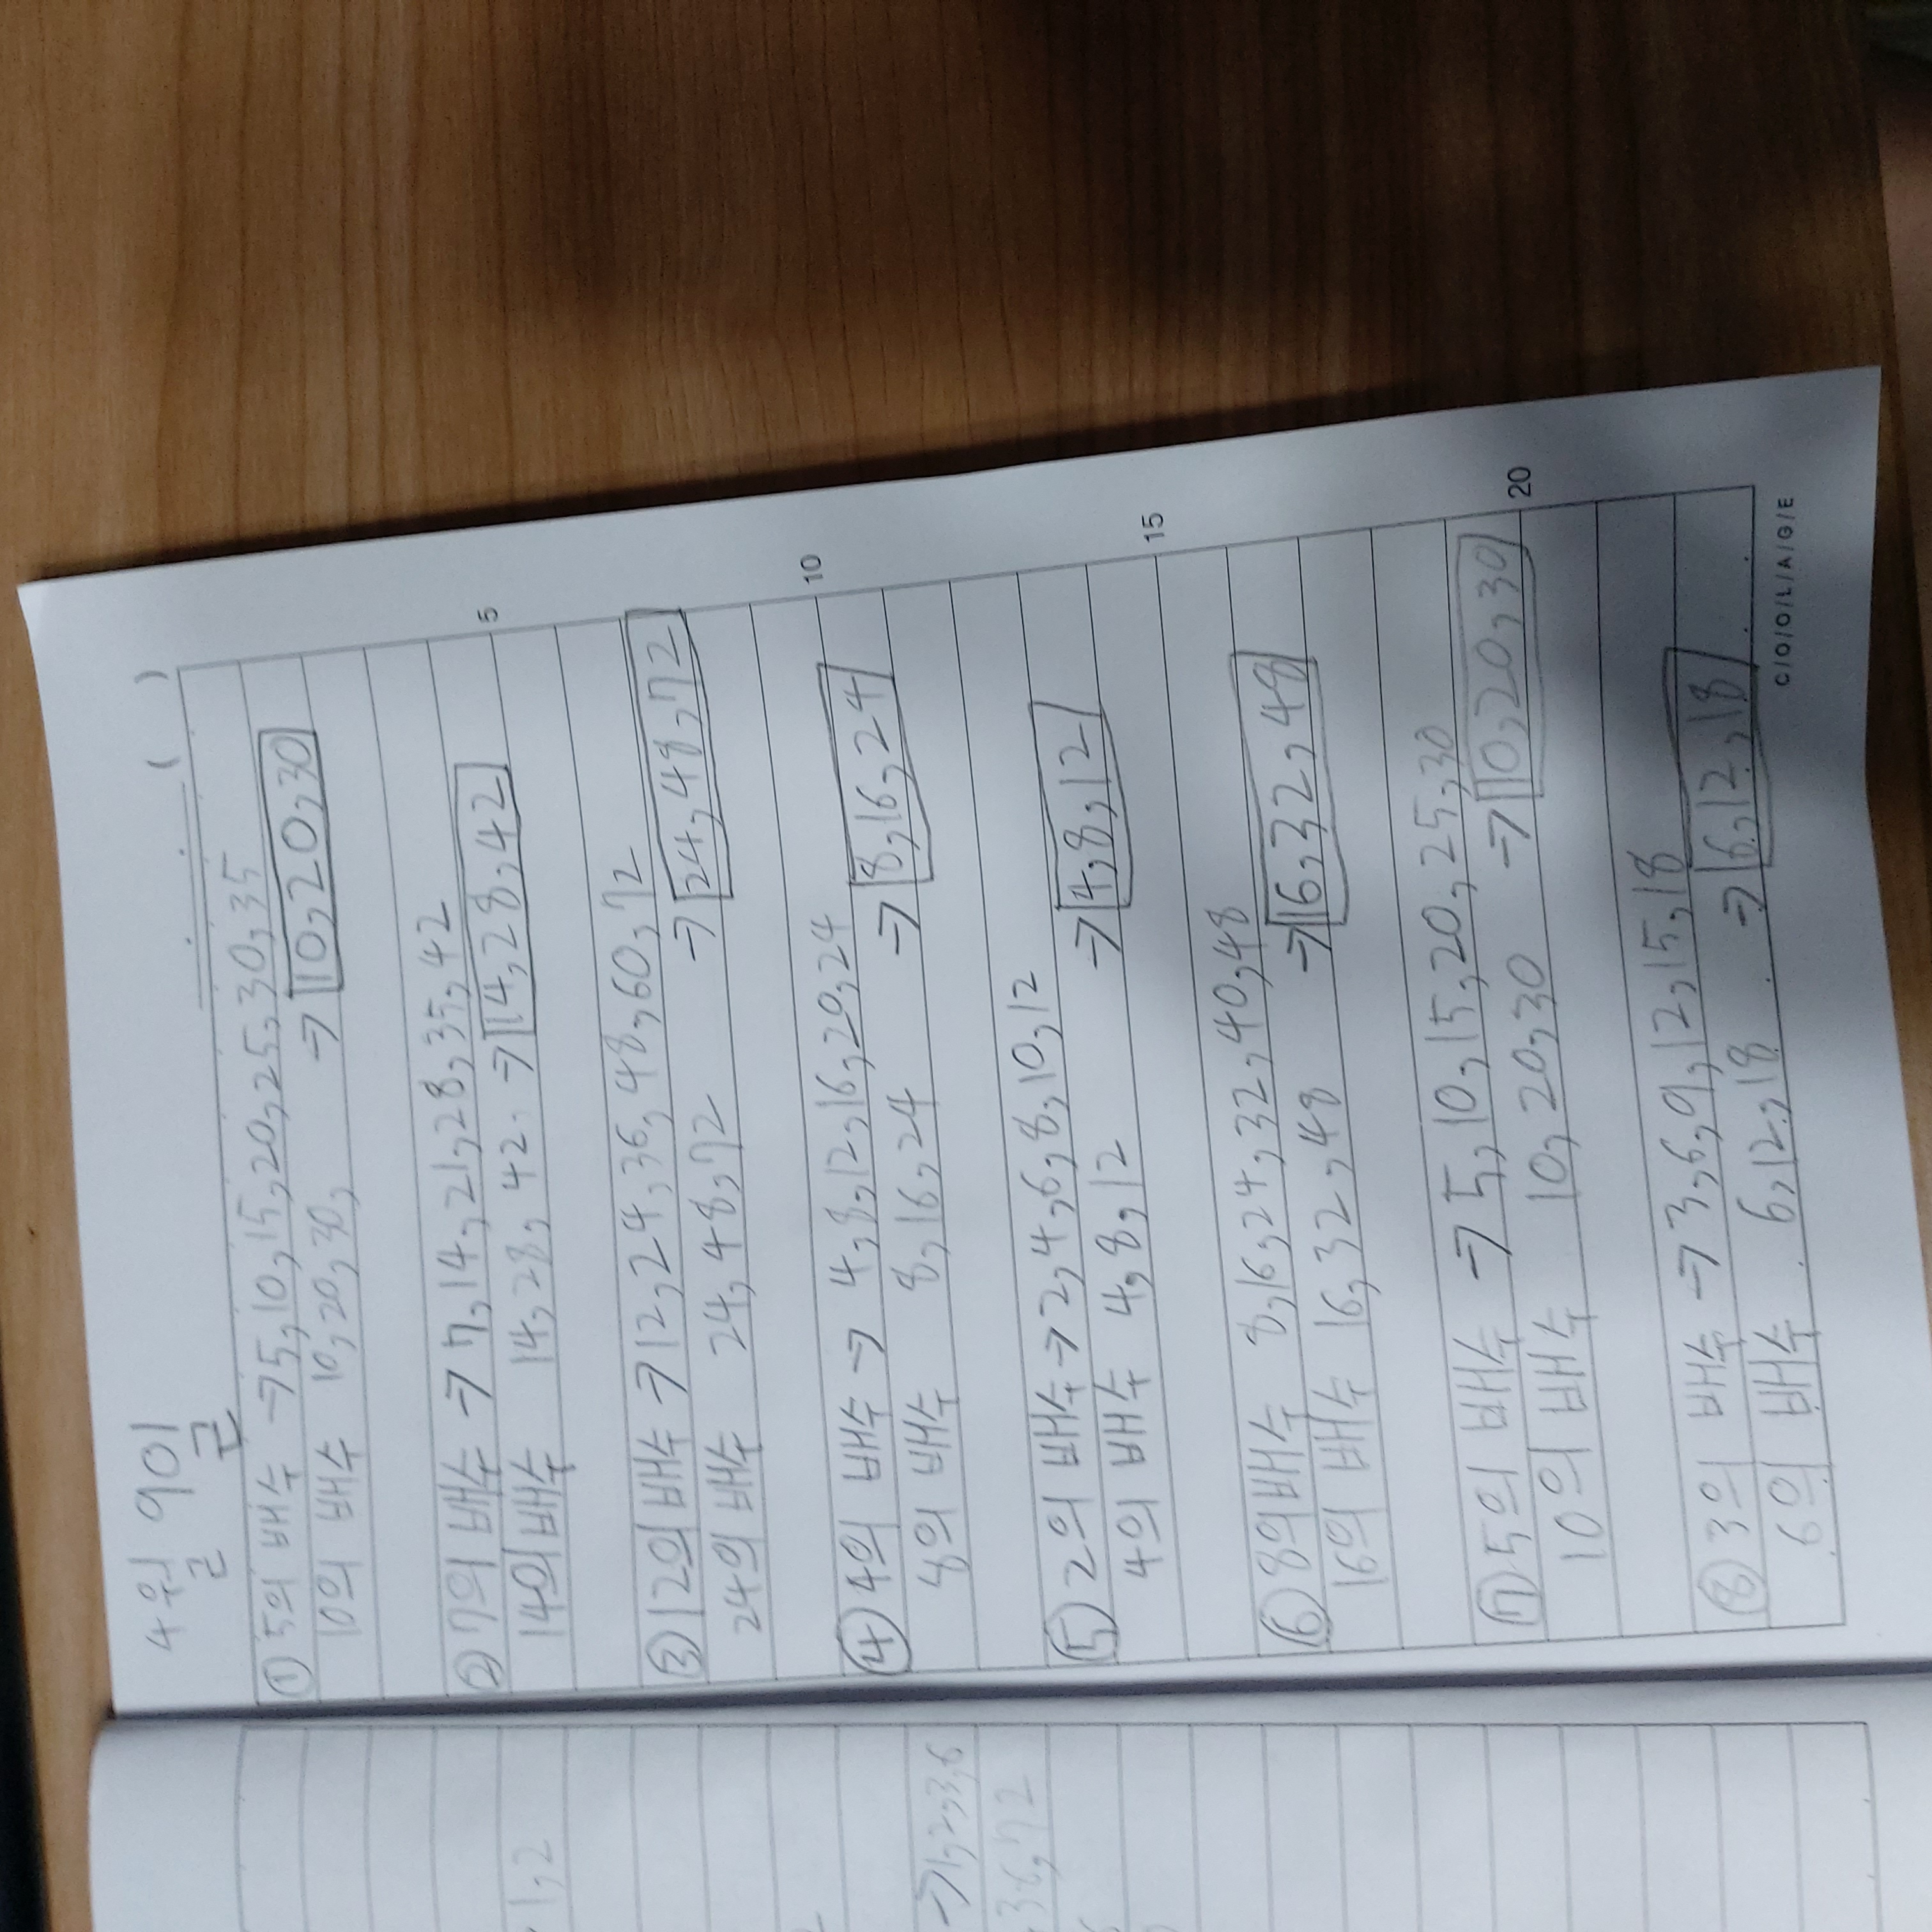 1,2
→1,2,3,6
36,72
4월 9일
. . ( )
① 5의 배수 → 5,10,15,20,25,30,35
10의 배수 10,20,30, → 10,20,30
② 7의 배수 → 7,14,21,28,35,42
14의 배수 14,28,42. → 14,28,42
5
③ 12의 배수 → 12,24,36,48,60,72
24의 배수 24,48,72 → 24,48,72
④ 4의 배수 → 4,8,12,16,20,24
10
8의 배수 8,16,24 → 8,16,24
⑤ 2의 배수 → 2,4,6,8,10,12
4의 배수 4,8,12 → 4,8,12
15
⑥ 8의배수 8,16,24,32,40,48
16의 배수 16,32,48 → 16,32,48
⑦ 5의 배수 → 5,10,15,20,25,30
10의 배수 10,20,30 → 10,20,30
20
⑧ 3의 배수 → 3,6,9,12,15,18
6의 배수 6,12,18 → 6,12,18
C/O/O/L/A/G/E